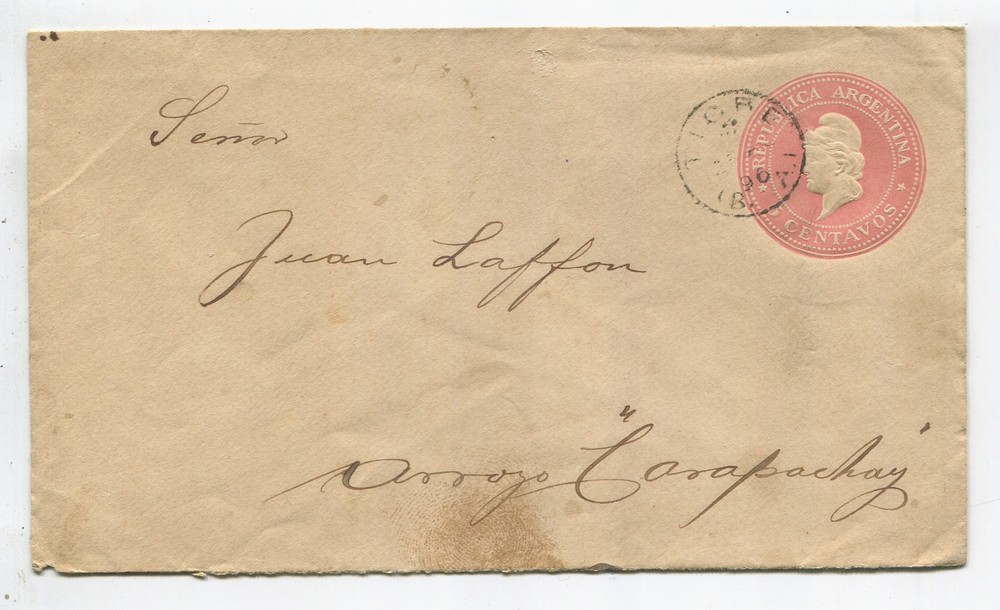 Señor
Juan Laffon
Arroyo "Carapachay"
REPUBLICA ARGENTINA
CENTAVOS
TIGRE
96
(B.